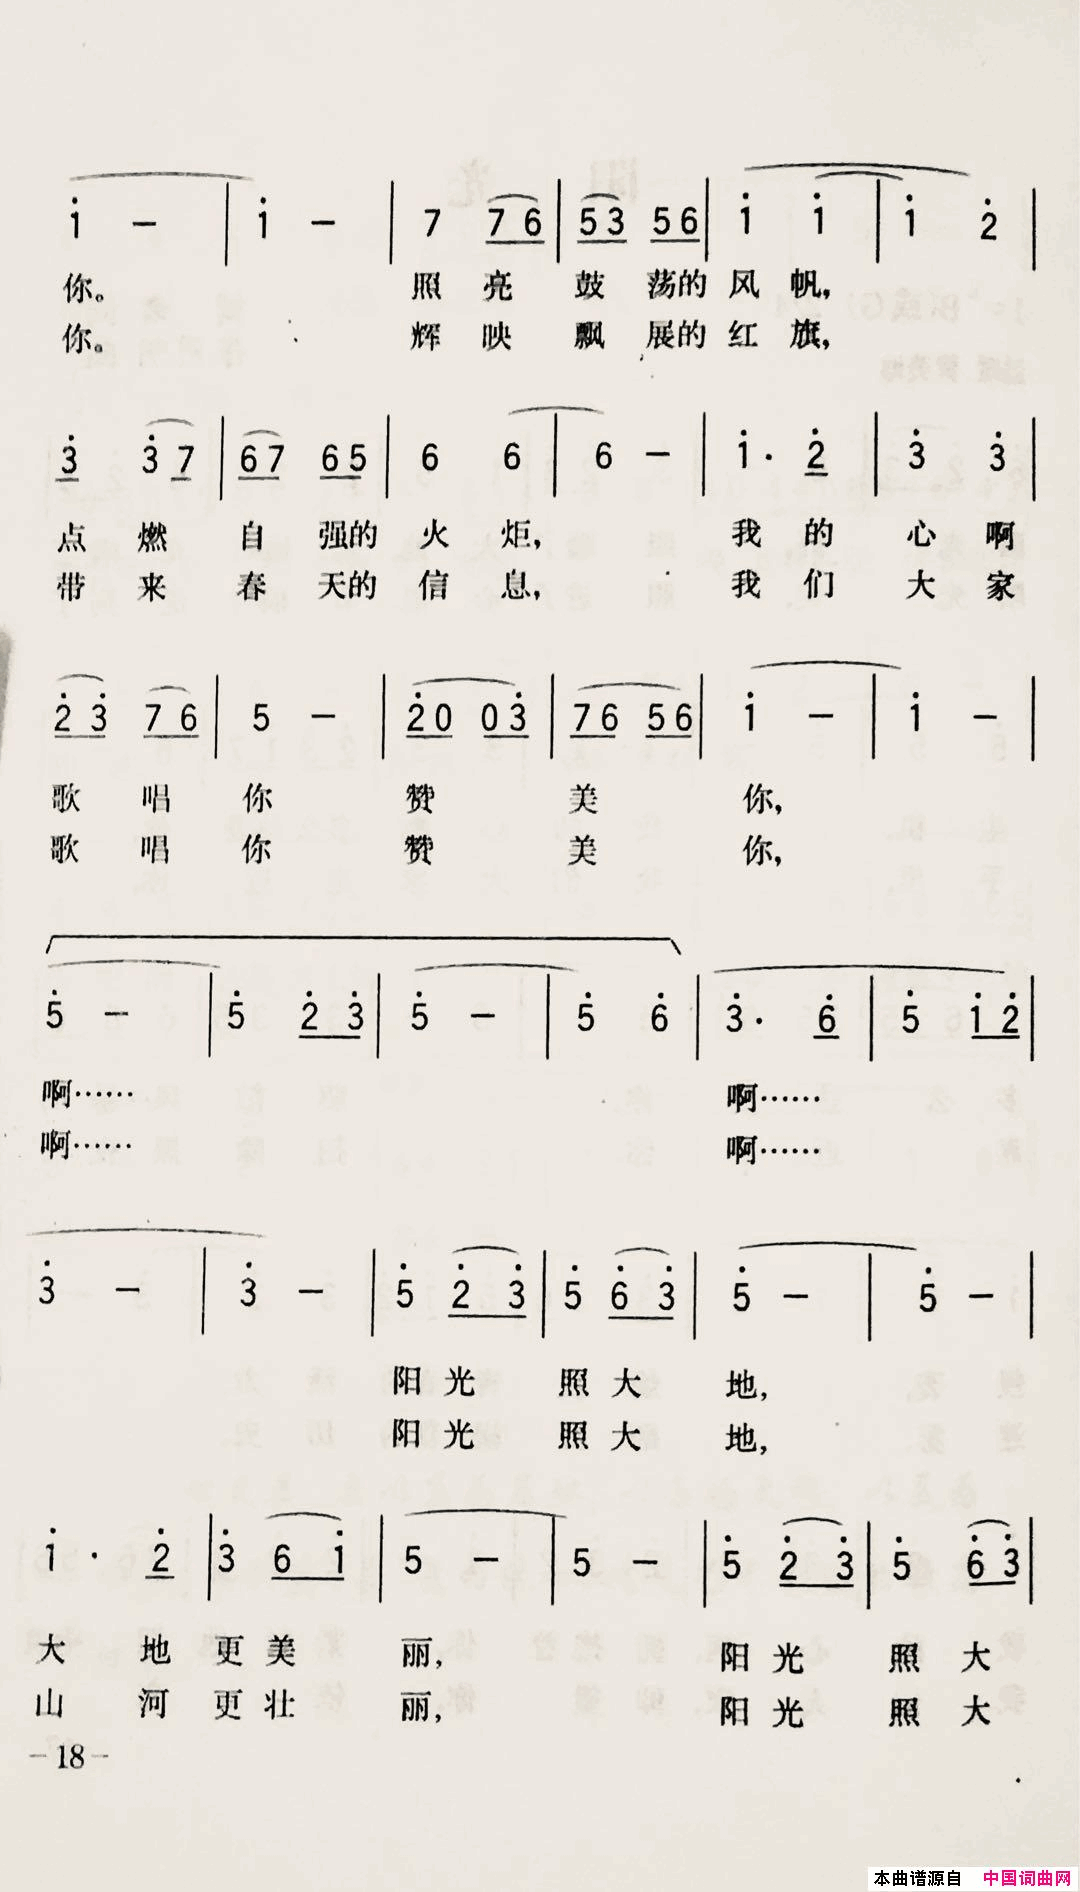 i - | i - | 7 7 6 | 5 3 5 6 | i i | i 2 |
你。 照 亮 鼓 荡的 风 帆,
你。 辉 映 飘 展的 红 旗,
3 3 7 | 6 7 6 5 | 6 6 | 6 - | i · 2 | 3 3 |
点 燃 自 强的 火 炬, 我 的 心 啊
带 来 春 天的 信 息, 我 们 大 家
2 3 7 6 | 5 - | 2 0 0 3 | 7 6 5 6 | i - | i - |
歌 唱 你 赞 美 你,
歌 唱 你 赞 美 你,
5 - | 5 2 3 | 5 - | 5 6 | 3 · 6 | 5 i 2 |
啊…… 啊……
啊…… 啊……
3 - | 3 - | 5 2 3 | 5 6 3 | 5 - | 5 - |
阳 光 照 大 地,
阳 光 照 大 地,
i · 2 | 3 6 i | 5 - | 5 - | 5 2 3 | 5 6 3 |
大 地 更 美 丽, 阳 光 照 大
山 河 更 壮 丽, 阳 光 照 大
- 18 -
本曲谱源自 中国词曲网